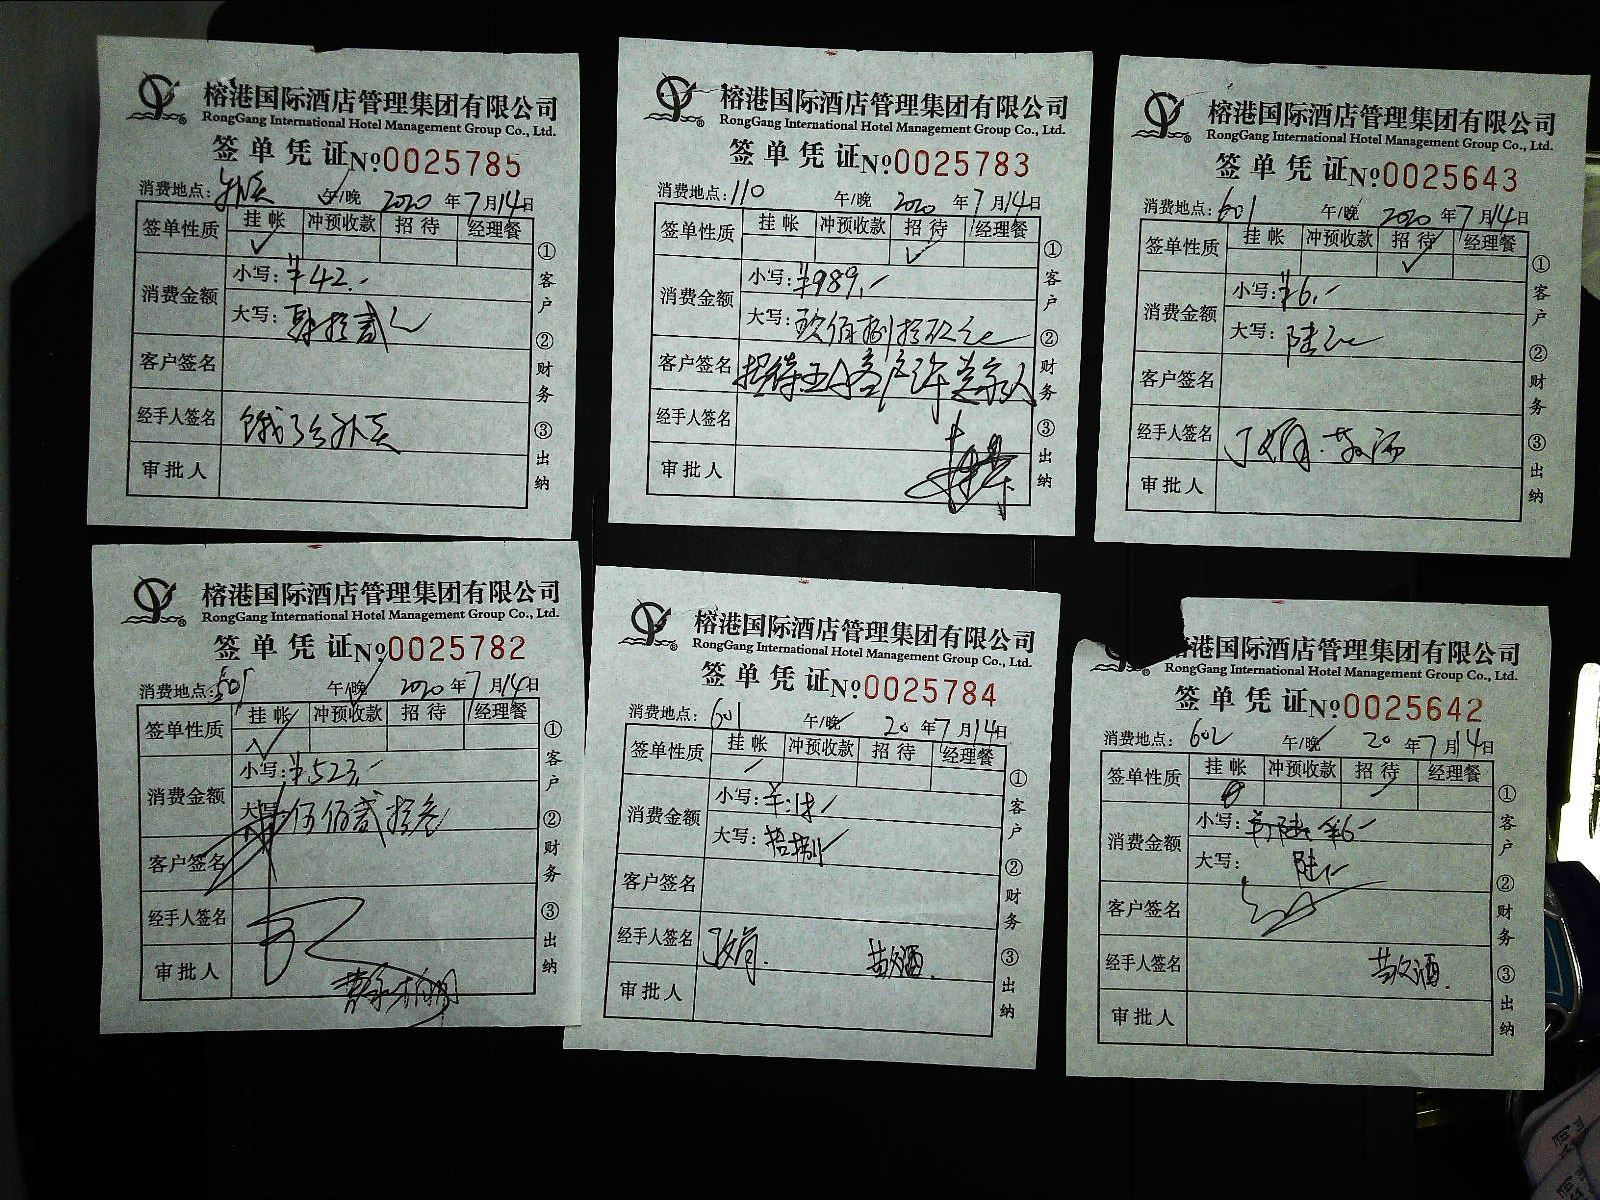 榕港国际酒店管理集团有限公司
RongGang International Hotel Management Group Co., Ltd.
签单凭证 №0025785
消费地点: 外卖 午/晚 2020 年 7 月 14 日
签单性质 挂帐 冲预收款 招待 经理餐
✓
消费金额 小写: ¥42.-
大写: 肆拾贰元
客户签名
经手人签名 饿了么外卖
审批人
①客户 ②财务 ③出纳
榕港国际酒店管理集团有限公司
RongGang International Hotel Management Group Co., Ltd.
签单凭证 №0025783
消费地点: 110 午/晚 2020 年 7 月 14 日
签单性质 挂帐 冲预收款 招待 经理餐
✓
消费金额 小写: ¥989.-
大写: 玖佰捌拾玖元
客户签名 招待
经手人签名
审批人
①客户 ②财务 ③出纳
榕港国际酒店管理集团有限公司
RongGang International Hotel Management Group Co., Ltd.
签单凭证 №0025643
消费地点: 601 午/晚 2020 年 7 月 14 日
签单性质 挂帐 冲预收款 招待 经理餐
✓
消费金额 小写: ¥6.-
大写: 陆元
客户签名
经手人签名 丁文娟. 敬酒
审批人
①客户 ②财务 ③出纳
榕港国际酒店管理集团有限公司
RongGang International Hotel Management Group Co., Ltd.
签单凭证 №0025782
消费地点: 501 午/晚 2020 年 7 月 14 日
签单性质 挂帐 冲预收款 招待 经理餐
✓
消费金额 小写: ¥523.-
大写: 伍佰贰拾叁
客户签名
经手人签名
审批人
①客户 ②财务 ③出纳
榕港国际酒店管理集团有限公司
RongGang International Hotel Management Group Co., Ltd.
签单凭证 №0025784
消费地点: 601 午/晚 20 年 7 月 14 日
签单性质 挂帐 冲预收款 招待 经理餐
消费金额 小写:
大写:
客户签名
经手人签名 敬酒.
审批人
①客户 ②财务 ③出纳
港国际酒店管理集团有限公司
RongGang International Hotel Management Group Co., Ltd.
签单凭证 №0025642
消费地点: 602 午/晚 20 年 7 月 14 日
签单性质 挂帐 冲预收款 招待 经理餐
消费金额 小写: ¥6-
大写: 陆元
客户签名
经手人签名 敬酒.
审批人
①客户 ②财务 ③出纳